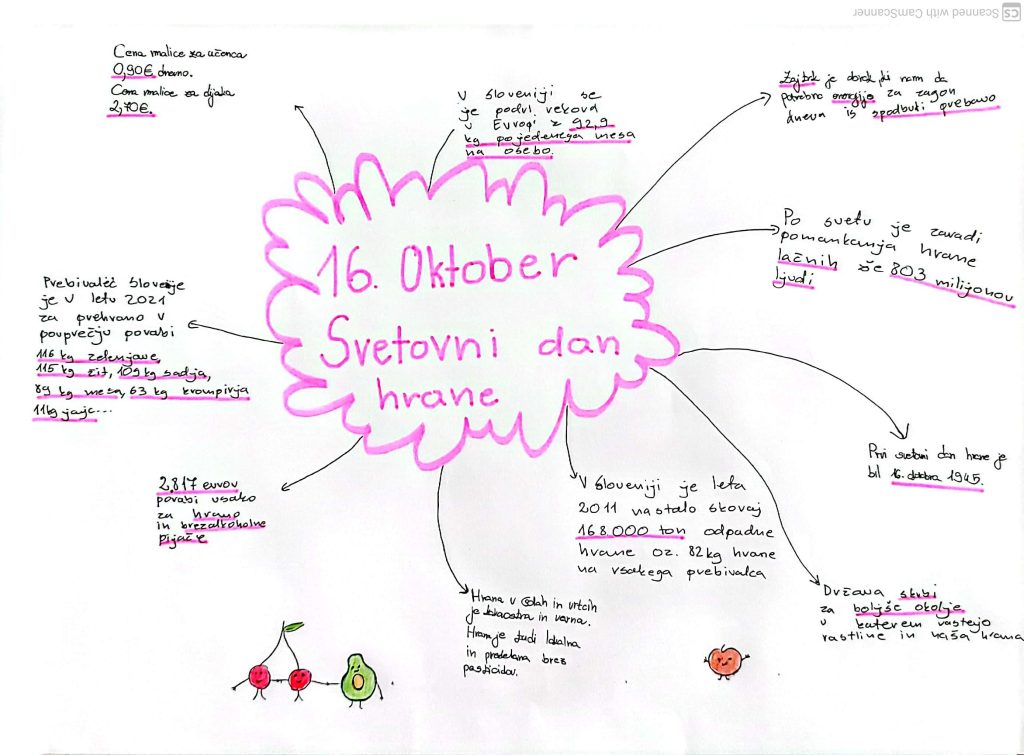 CS Scanned with CamScanner
Cena malice za učenca
0,90€ dnevno.
Cena malice za dijaka
2,70€.
V Sloveniji se
je podvi vekova
v Evropi z 92,9
kg pojedenega mesa
na osebo.
Zajtrk je obrok, ki nam da
potrebno energijo za zagon
dneva in spodbuti prebavo
Po svetu je zaradi
pomankanja hrane
lačnih še 803 milijonov
ljudi
16. Oktober
Svetovni dan
hrane
Prebivalec Slovenije
je v letu 2021
za prehrano v
povprečju porabi
116 kg zelenjave,
115 kg žit, 109 kg sadja,
89 kg mesa, 63 kg krompirja
11kg jajc...
Prvi svetovni dan hrane je
bil 16. oktobra 1945.
2,817 eurov
porabi vsako
za hrano
in brezalkoholne
pijače
V Sloveniji je leta
2011 nastalo skoraj
168.000 ton odpadne
hrane oz. 82kg hrane
na vsakega prebivalca
Hrana v šolah in vrtcih
je kakovostna in varna.
Hrana je tudi lokalna
in pridelana brez
pasticidov.
Država skrbi
za boljše okolje
v katerem rastejo
rastline in naša hrana